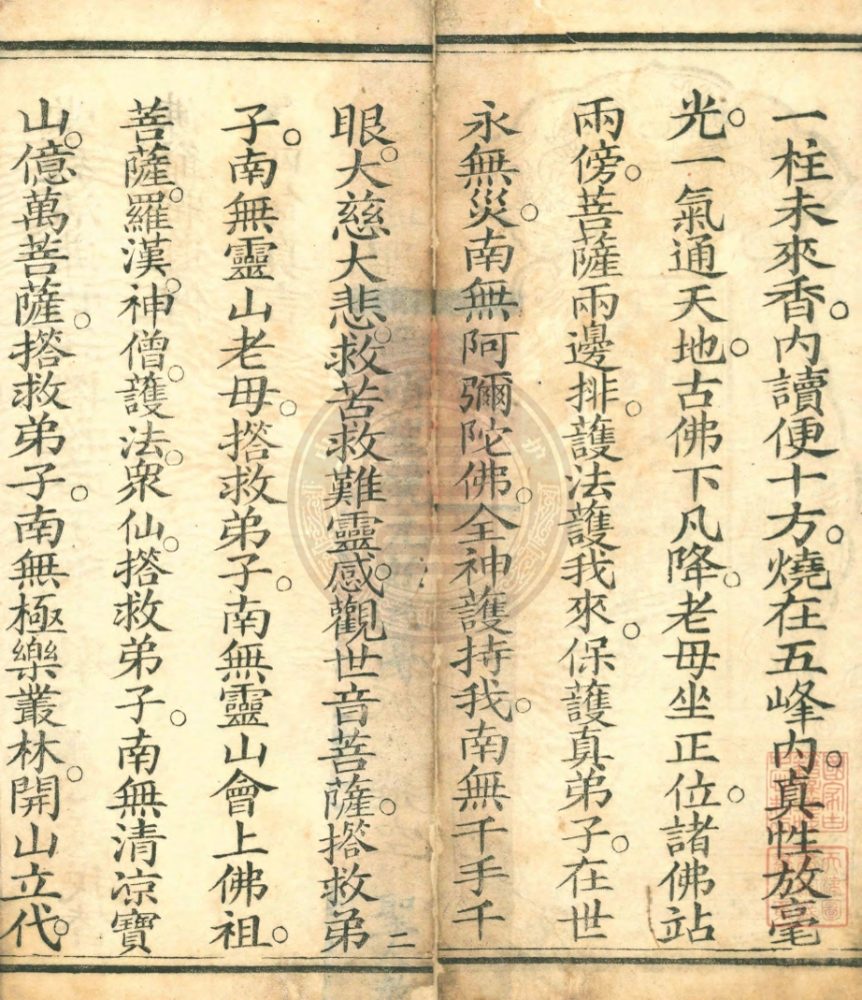 一柱未來香。内讀便十方。燒在五峰内。真性放毫
光。一氣通天地。古佛下凡降。老母坐正位。諸佛站
兩傍。菩薩兩邊排。護法護我來。保護真弟子。在世
永無災。南無阿彌陀佛。全神護持我。南無千手千
眼。大慈大悲。救苦救難靈感。觀世音菩薩。撘救弟
二
子。南無靈山老母。撘救弟子。南無靈山會上佛祖。
菩薩。羅漢。神僧。護法。衆仙。撘救弟子。南無清凉寶
山。億萬菩薩。撘救弟子。南無極樂叢林。開山立代。